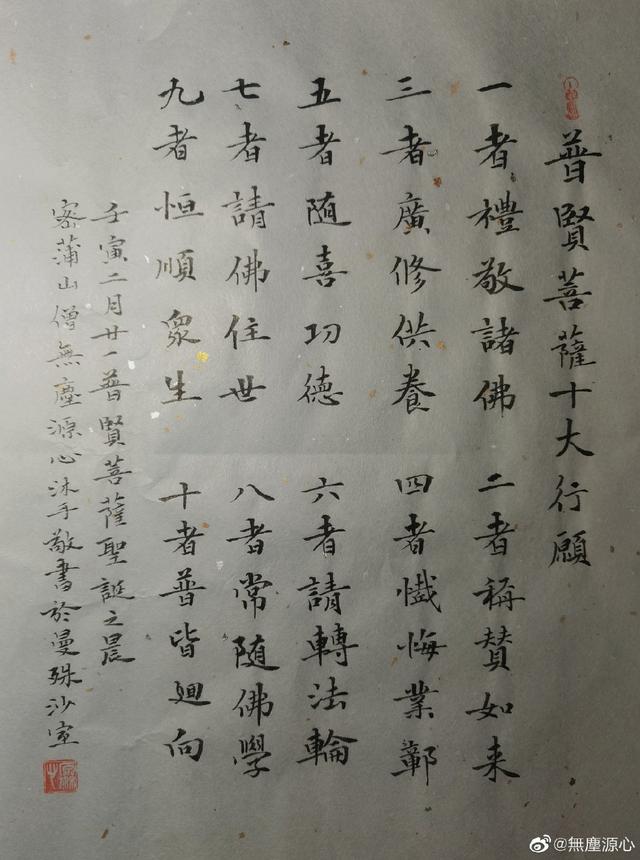 普賢菩薩十大行願
一者禮敬諸佛 二者稱赞如来
三者廣修供養 四者懺悔業鄣
五者随喜功德 六者請轉法輪
七者請佛住世 八者常随佛學
九者恒順衆生 十者普皆廻向
壬寅二月廿一普賢菩薩聖誕之晨
密蒲山僧無塵源心沐手敬書於曼殊沙室
@無塵源心